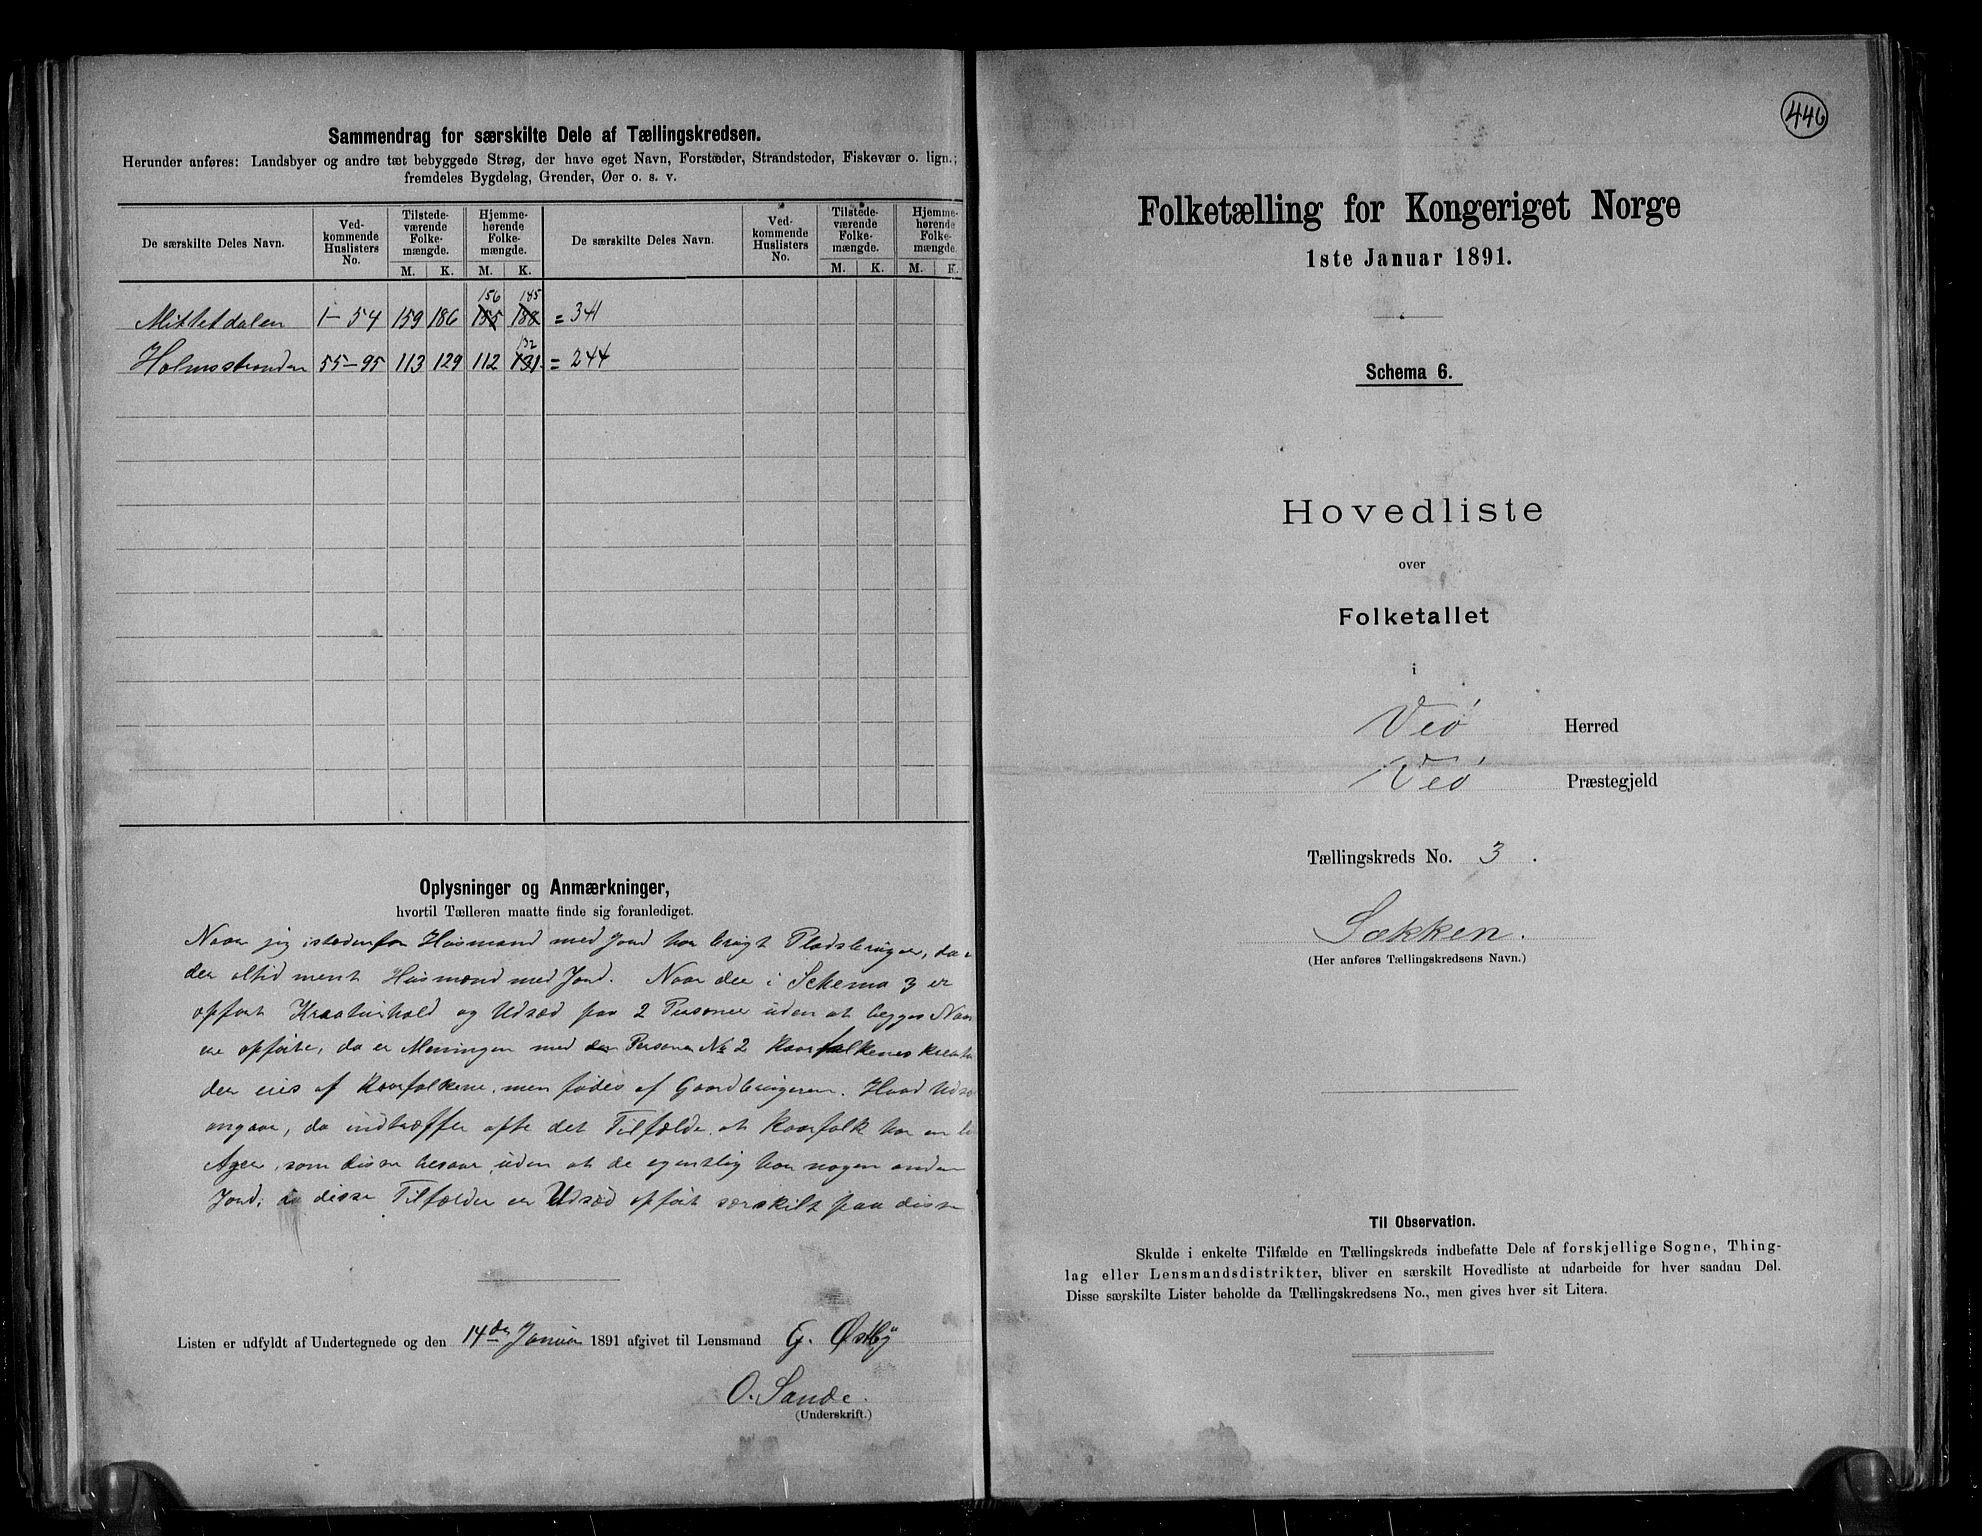 Sammendrag for særskilte Dele af Tællingskredsen.
Herunder anføres: Landsbyer og andre tæt bebyggede Strøg, der have eget Navn, Forstæder, Strandsteder, Fiskevær o. lign.;
fremdeles Bygdelag, Grender, Øer o. s. v.
De særskilte Deles Navn. Ved-kommende Huslisters No. Tilstede-værende Folke-mængde. Hjemme-hørende Folke-mængde. De særskilte Deles Navn. Ved-kommende Huslisters No. Tilstede-værende Folke-mængde. Hjemme-hørende Folke-mængde.
M. K. M. K. M. K. M. K.
156 185
Mittetdalen 1-54 159 186 155 188 = 341
132
Holmsstranden 55-95 113 129 112 131 = 244
Oplysninger og Anmærkninger,
hvortil Tælleren maatte finde sig foranlediget.
Naar jeg istedenfor Husmand med Jord har brugt Pladsbruger, da er
der altid ment Husmænd med Jord. Naar der i Schema 3 er
opført Kreaturhold og Udsæd paa 2 Personer uden at begges Navn
er opførte, da er Meningen med den Person No 2 Kaarfolkenes
der eies af Kaarfolkene, men fødes af Gaardbrugeren. Hvad Udsæd
angaar, da indtræffer ofte det Tilfælde, at Kaarfolk har en
Ager, som disse besaar, uden at de egentlig har nogen anden
Jord; disse Tilfælder er Udsæd opført særskilt paa disse
Listen er udfyldt af Undertegnede og den 14de Januar 1891 afgivet til Lensmand G. Østby
O. Sande.
(Underskrift.)
446
Folketælling for Kongeriget Norge
1ste Januar 1891.
Schema 6.
Hovedliste
over
Folketallet
i
Veø Herred
Veø Præstegjeld
Tællingskreds No. 3.
Sækken.
(Her anføres Tællingskredsens Navn.)
Til Observation.
Skulde i enkelte Tilfælde en Tællingskreds indbefatte Dele af forskjellige Sogne, Thing-
lag eller Lensmandsdistrikter, bliver en særskilt Hovedliste at udarbeide for hver saadan Del.
Disse særskilte Lister beholde da Tællingskredsens No., men gives hver sit Litera.